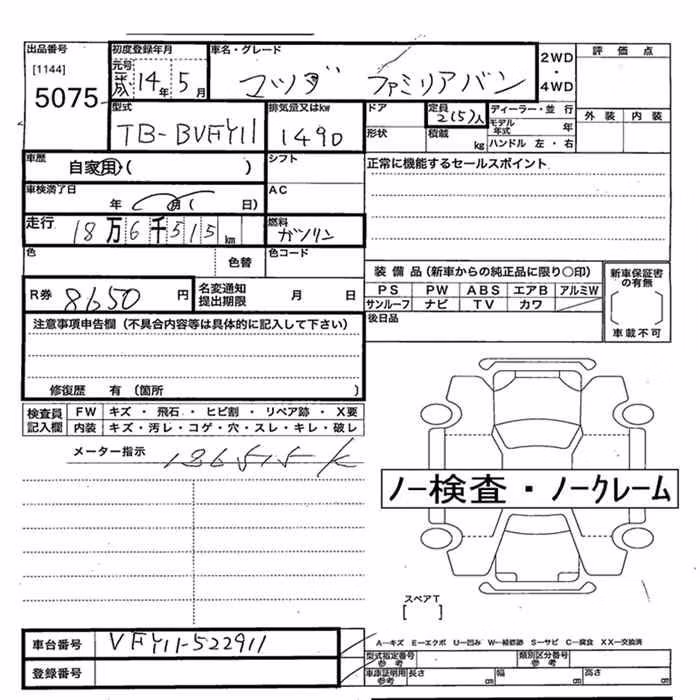 出品番号
[1144]
5075
初度登録年月
元号
平成 14年 5月
車名・グレード
マツダ ファミリアバン
2WD
・
4WD
評価点
型式
TB-BVFY11
排気量又はkw
1490
ドア
形状
定員
2(5)人
積載 kg
ディーラー・並行
モデル年式 年
ハンドル 左・右
外装 内装
車歴
自家用・( )
シフト
正常に機能するセールスポイント
車検満了日
年 月( 日)
AC
走行
18万6千515km
燃料
ガソリン
色
色替
色コード
R券 8650円
名変通知
提出期限
月 日
装備品(新車からの純正品に限り○印)
PS PW ABS エアB アルミW
サンルーフ ナビ TV カワ
新車保証書
の有無
車載不可
後日品
注意事項申告欄(不具合内容等は具体的に記入して下さい)
修復歴 有(箇所 )
検査員
記入欄
FW キズ・飛石・ヒビ割・リペア跡・X要
内装 キズ・汚レ・コゲ・穴・スレ・キレ・破レ
メーター指示
186515K
ノー検査・ノークレーム
スペアT
[ ]
車台番号 VFY11-522911
登録番号
A－キズ E－エクボ U－凹み W－補修跡 S－サビ C－腐食 XX－交換済
型式指定番号
参考
類別区分番号
参考
車庫証明用
参考
長さ cm 幅 cm 高さ cm